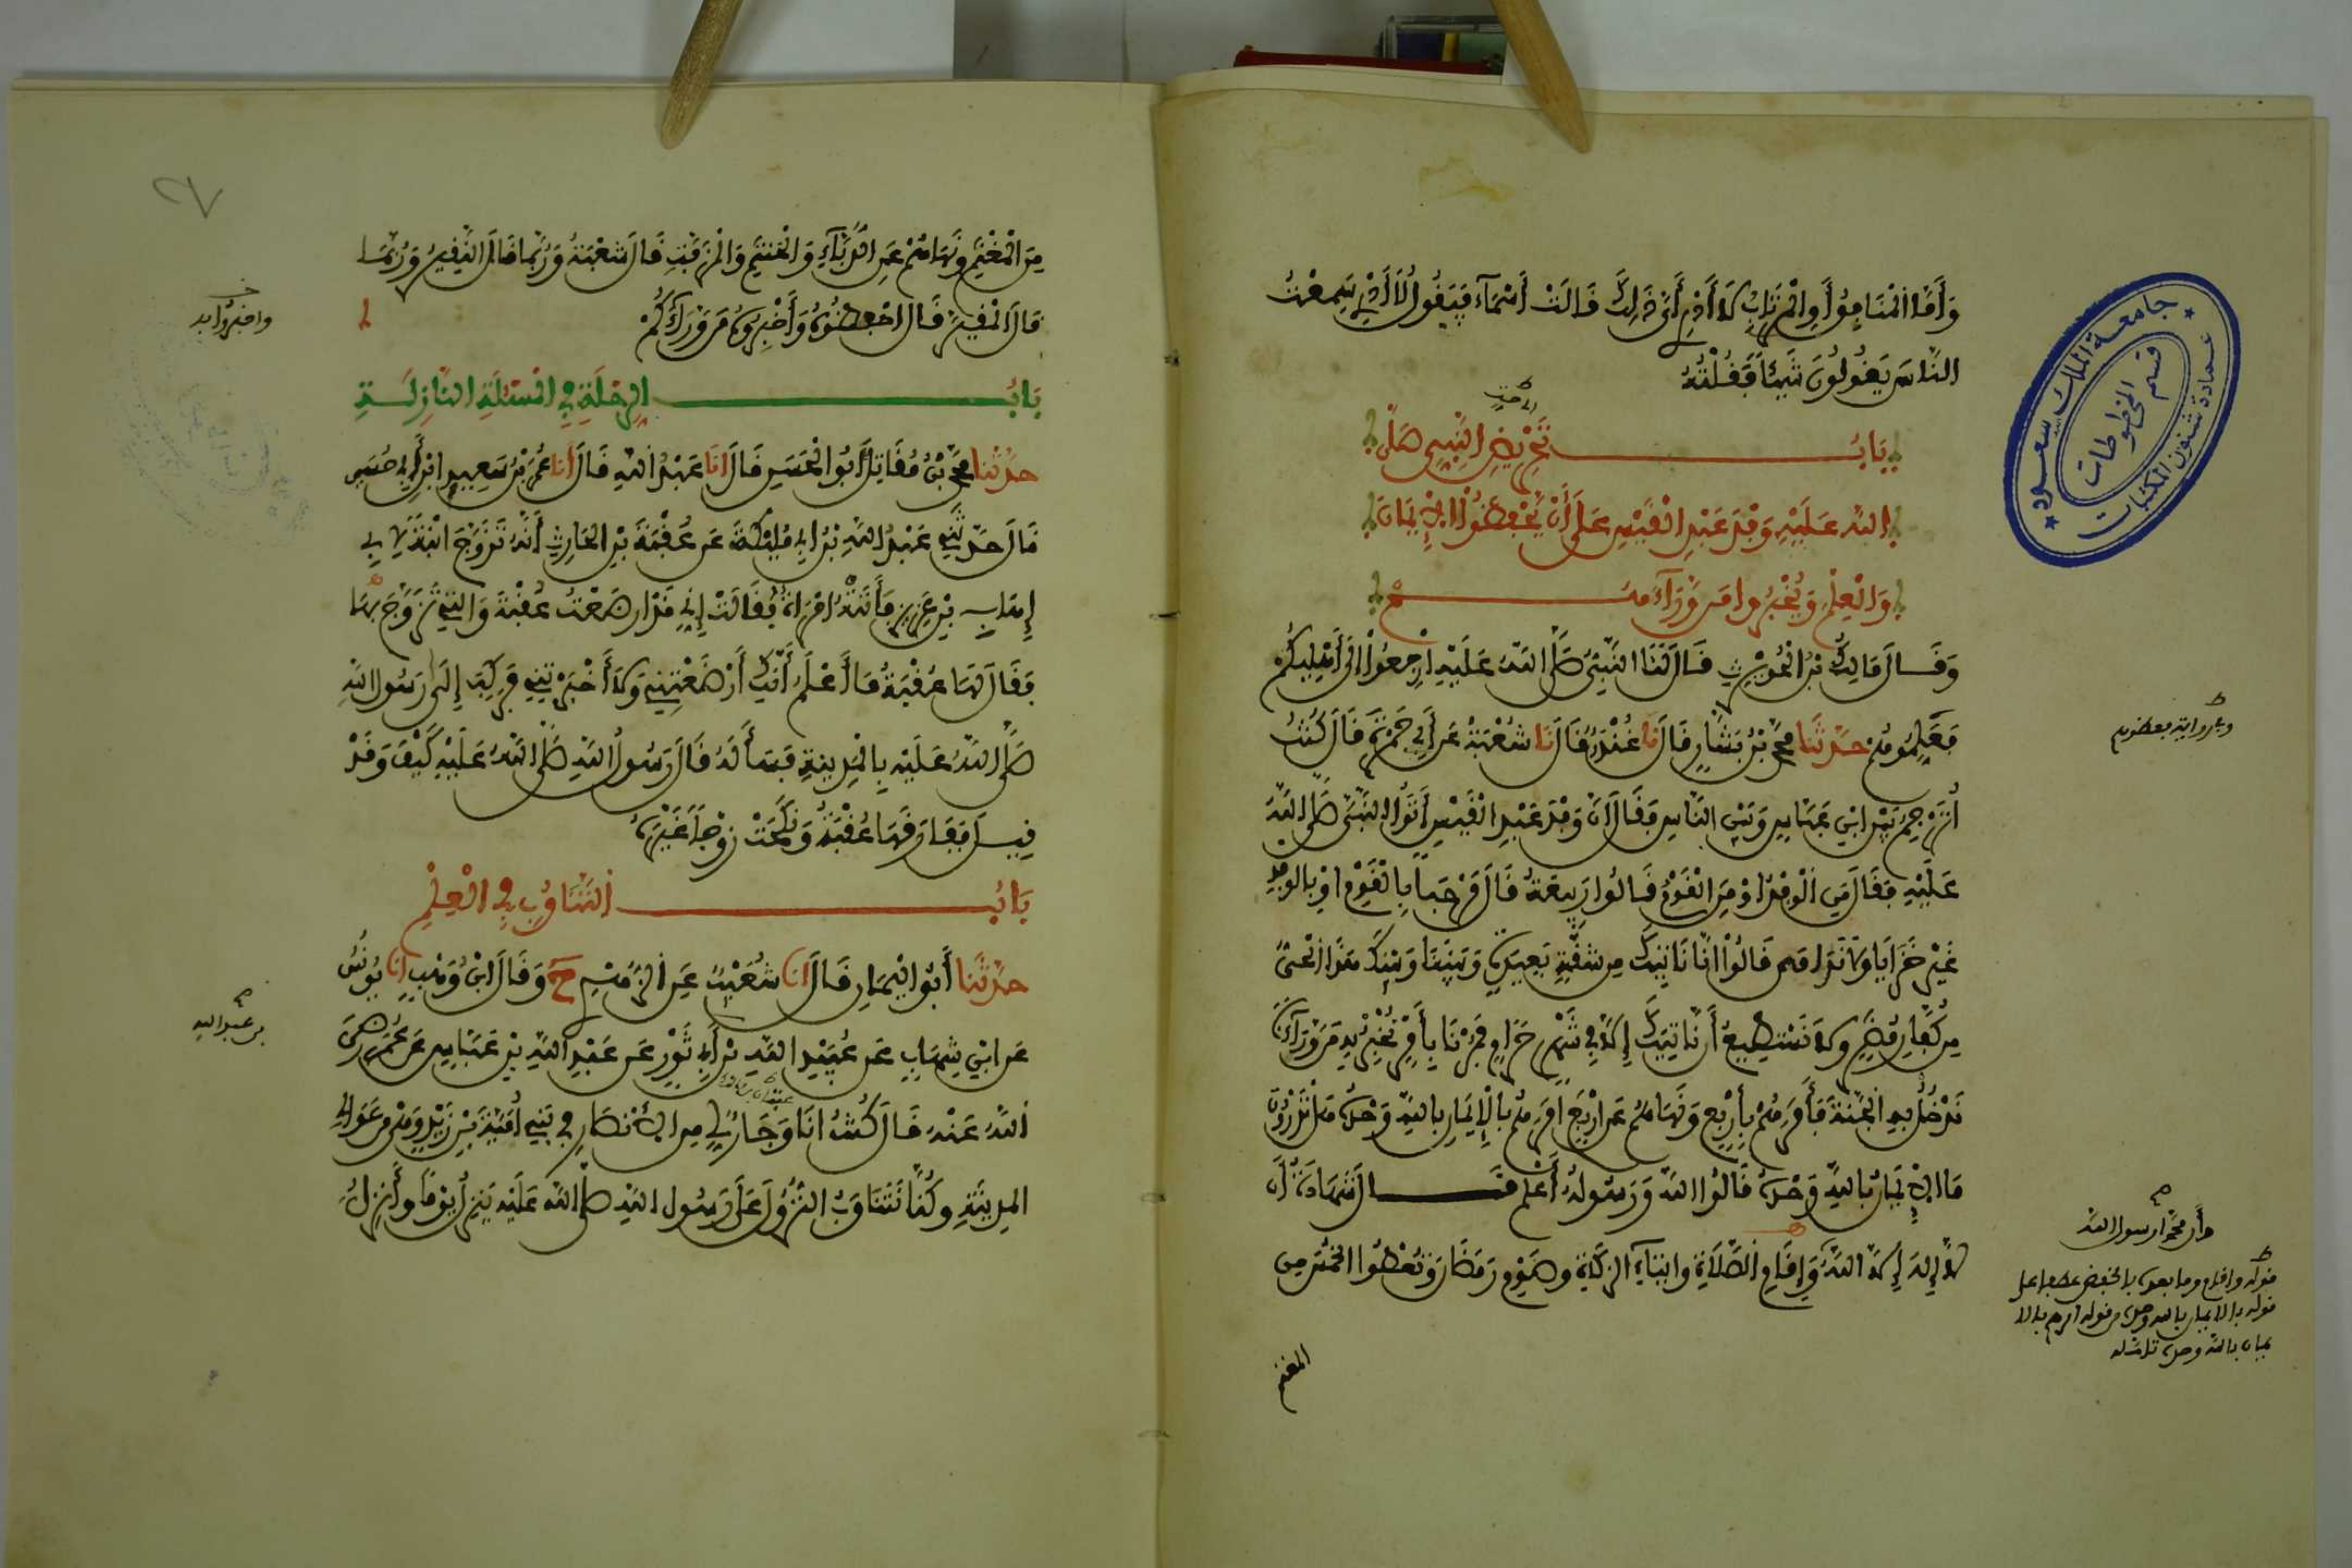 وَأَمَّا الْمُنَافِقُ أَوِ الْمُرْتَابُ لَا أَدْرِي أَيَّ ذَلِكَ قَالَتْ أَسْمَاءُ فَيَقُولُ لَا أَدْرِي سَمِعْتُ
النَّاسَ يَقُولُونَ شَيْئًا فَقُلْتُهُ
بَابُ تَحْرِيضِ النَّبِيِّ صَلَّى
اللهُ عَلَيْهِ وَفْدَ عَبْدِ الْقَيْسِ عَلَى أَنْ يَحْفَظُوا الْإِيمَانَ
وَالْعِلْمَ وَيُخْبِرُوا مَن وَرَاءَهُمْ
وَقَالَ مَالِكُ بْنُ الْحُوَيْرِثِ قَالَ لَنَا النَّبِيُّ صَلَّى اللهُ عَلَيْهِ ارْجِعُوا إِلَى أَهْلِيكُمْ
فَعَلِّمُوهُمْ حَدَّثَنَا مُحَمَّدُ بْنُ بَشَّارٍ قَالَ نَا غُنْدَرٌ قَالَ نَا شُعْبَةُ عَنْ أَبِي جَمْرَةَ قَالَ كُنْتُ
أُتَرْجِمُ بَيْنَ ابْنِ عَبَّاسٍ وَبَيْنَ النَّاسِ فَقَالَ إِنَّ وَفْدَ عَبْدِ الْقَيْسِ أَتَوُا النَّبِيَّ صَلَّى اللهُ
عَلَيْهِ فَقَالَ مَنِ الْوَفْدُ أَوْ مَنِ الْقَوْمُ قَالُوا رَبِيعَةُ قَالَ مَرْحَبًا بِالْقَوْمِ أَوْ بِالْوَفْدِ
غَيْرَ خَزَايَا وَلَا نَدَامَى قَالُوا إِنَّا نَاتِيكَ مِن شُقَّةٍ بَعِيدَةٍ وَبَيْنَنَا وَبَيْنَكَ هَذَا الْحَيُّ
مِن كُفَّارِ مُضَرَ وَلَا نَسْتَطِيعُ أَن نَاتِيَكَ إِلَّا فِي شَهْرٍ حَرَامٍ فَمُرْنَا بِأَمْرٍ نُخْبِرْ بِهِ مَن وَرَاءَنَا
نَدْخُلُ بِهِ الْجَنَّةَ فَأَمَرَهُمْ بِأَرْبَعٍ وَنَهَاهُمْ عَنْ أَرْبَعٍ أَمَرَهُمْ بِالْإِيمَانِ بِاللهِ وَحْدَهُ هَلْ تَدْرُونَ
مَا الْإِيمَانُ بِاللهِ وَحْدَهُ قَالُوا اللهُ وَرَسُولُهُ أَعْلَمُ قَالَ شَهَادَةُ أَن
لَّا إِلَهَ إِلَّا اللهُ وَإِقَامِ الصَّلَاةِ وَإِيتَاءِ الزَّكَاةِ وَصَوْمِ رَمَضَانَ وَتُعْطُوا الْخُمُسَ مِنَ
المغنم
وأن محمدا رسول الله
قوله وإقام وما بعده بالخفض عطفا على
قوله بالايمان بالله وحده من قوله امرهم بالا
يمان بالله وحده
جامعة الملك سعود
قسم المخطوطات
عمادة شئون المكتبات
٢٧
مِنَ الْمَغْنَمِ وَنَهَاهُمْ عَنِ الدُّبَّاءِ وَالْحَنْتَمِ وَالْمُزَفَّتِ قَالَ شُعْبَةُ وَرُبَّمَا قَالَ النَّقِيرِ وَرُبَّمَا
قَالَ الْمُقَيَّرِ قَالَ احْفَظُوهُ وَأَخْبِرُوهُ مَن وَرَاءَكُمْ
بَابُ الرِّحْلَةِ فِي الْمَسْئَلَةِ النَّازِلَةِ
حَدَّثَنَا مُحَمَّدُ بْنُ مُقَاتِلٍ أَبُو الْحَسَنِ قَالَ أَنَا عَبْدُ اللهِ قَالَ أَنَا عُمَرُ بْنُ سَعِيدِ ابْنِ أَبِي حُسَيْنٍ
قَالَ حَدَّثَنِي عَبْدُ اللهِ بْنُ أَبِي مُلَيْكَةَ عَن عُقْبَةَ بْنِ الْحَارِثِ أَنَّهُ تَزَوَّجَ ابْنَةً لِأَبِي
إِهَابِ بْنِ عَزِيزٍ فَأَتَتْهُ امْرَأَةٌ فَقَالَتْ إِنِّي قَدْ أَرْضَعْتُ عُقْبَةَ وَالَّتِي تَزَوَّجَ بِهَا
فَقَالَ لَهَا عُقْبَةُ مَا أَعْلَمُ أَنَّكِ أَرْضَعْتِنِي وَلَا أَخْبَرْتِنِي فَرَكِبَ إِلَى رَسُولِ اللهِ
صَلَّى اللهُ عَلَيْهِ بِالْمَدِينَةِ فَسَأَلَهُ فَقَالَ رَسُولُ اللهِ صَلَّى اللهُ عَلَيْهِ كَيْفَ وَقَدْ
قِيلَ فَفَارَقَهَا عُقْبَةُ وَنَكَحَتْ زَوْجًا غَيْرَهُ
بَابُ التَّنَاوُبِ فِي الْعِلْمِ
حَدَّثَنَا أَبُو الْيَمَانِ قَالَ أَنَا شُعَيْبٌ عَنِ الزُّهْرِيِّ ح وَقَالَ ابْنُ وَهْبٍ أَنَا يُونُسُ
عَنِ ابْنِ شِهَابٍ عَن عُبَيْدِ اللهِ بْنِ أَبِي ثَوْرٍ عَن عَبْدِ اللهِ بْنِ عَبَّاسٍ عَن عُمَرَ رَضِيَ
اللهُ عَنْهُ قَالَ كُنْتُ أَنَا وَجَارٌ لِي مِنَ الْأَنْصَارِ فِي بَنِي أُمَيَّةَ بْنِ زَيْدٍ وَهْيَ مِن عَوَالِي
الْمَدِينَةِ وَكُنَّا نَتَنَاوَبُ النُّزُولَ عَلَى رَسُولِ اللهِ صَلَّى اللهُ عَلَيْهِ يَنْزِلُ يَوْمًا وَأَنْزِلُ
بن عبد الله